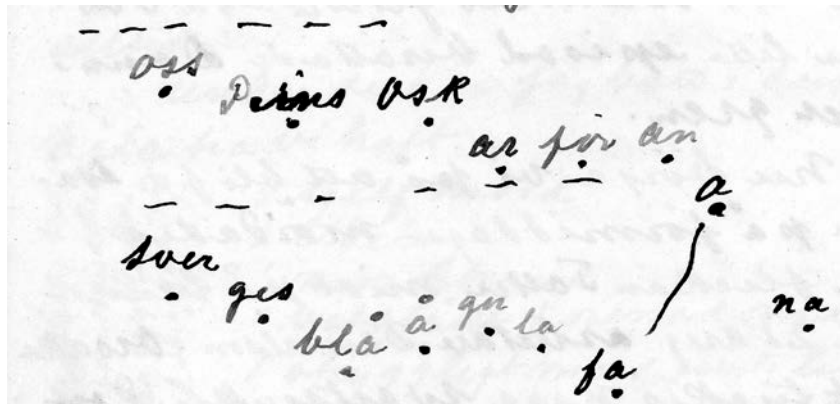 oss Prins Osk ar för an a
Sver ges blå å gu la fa na